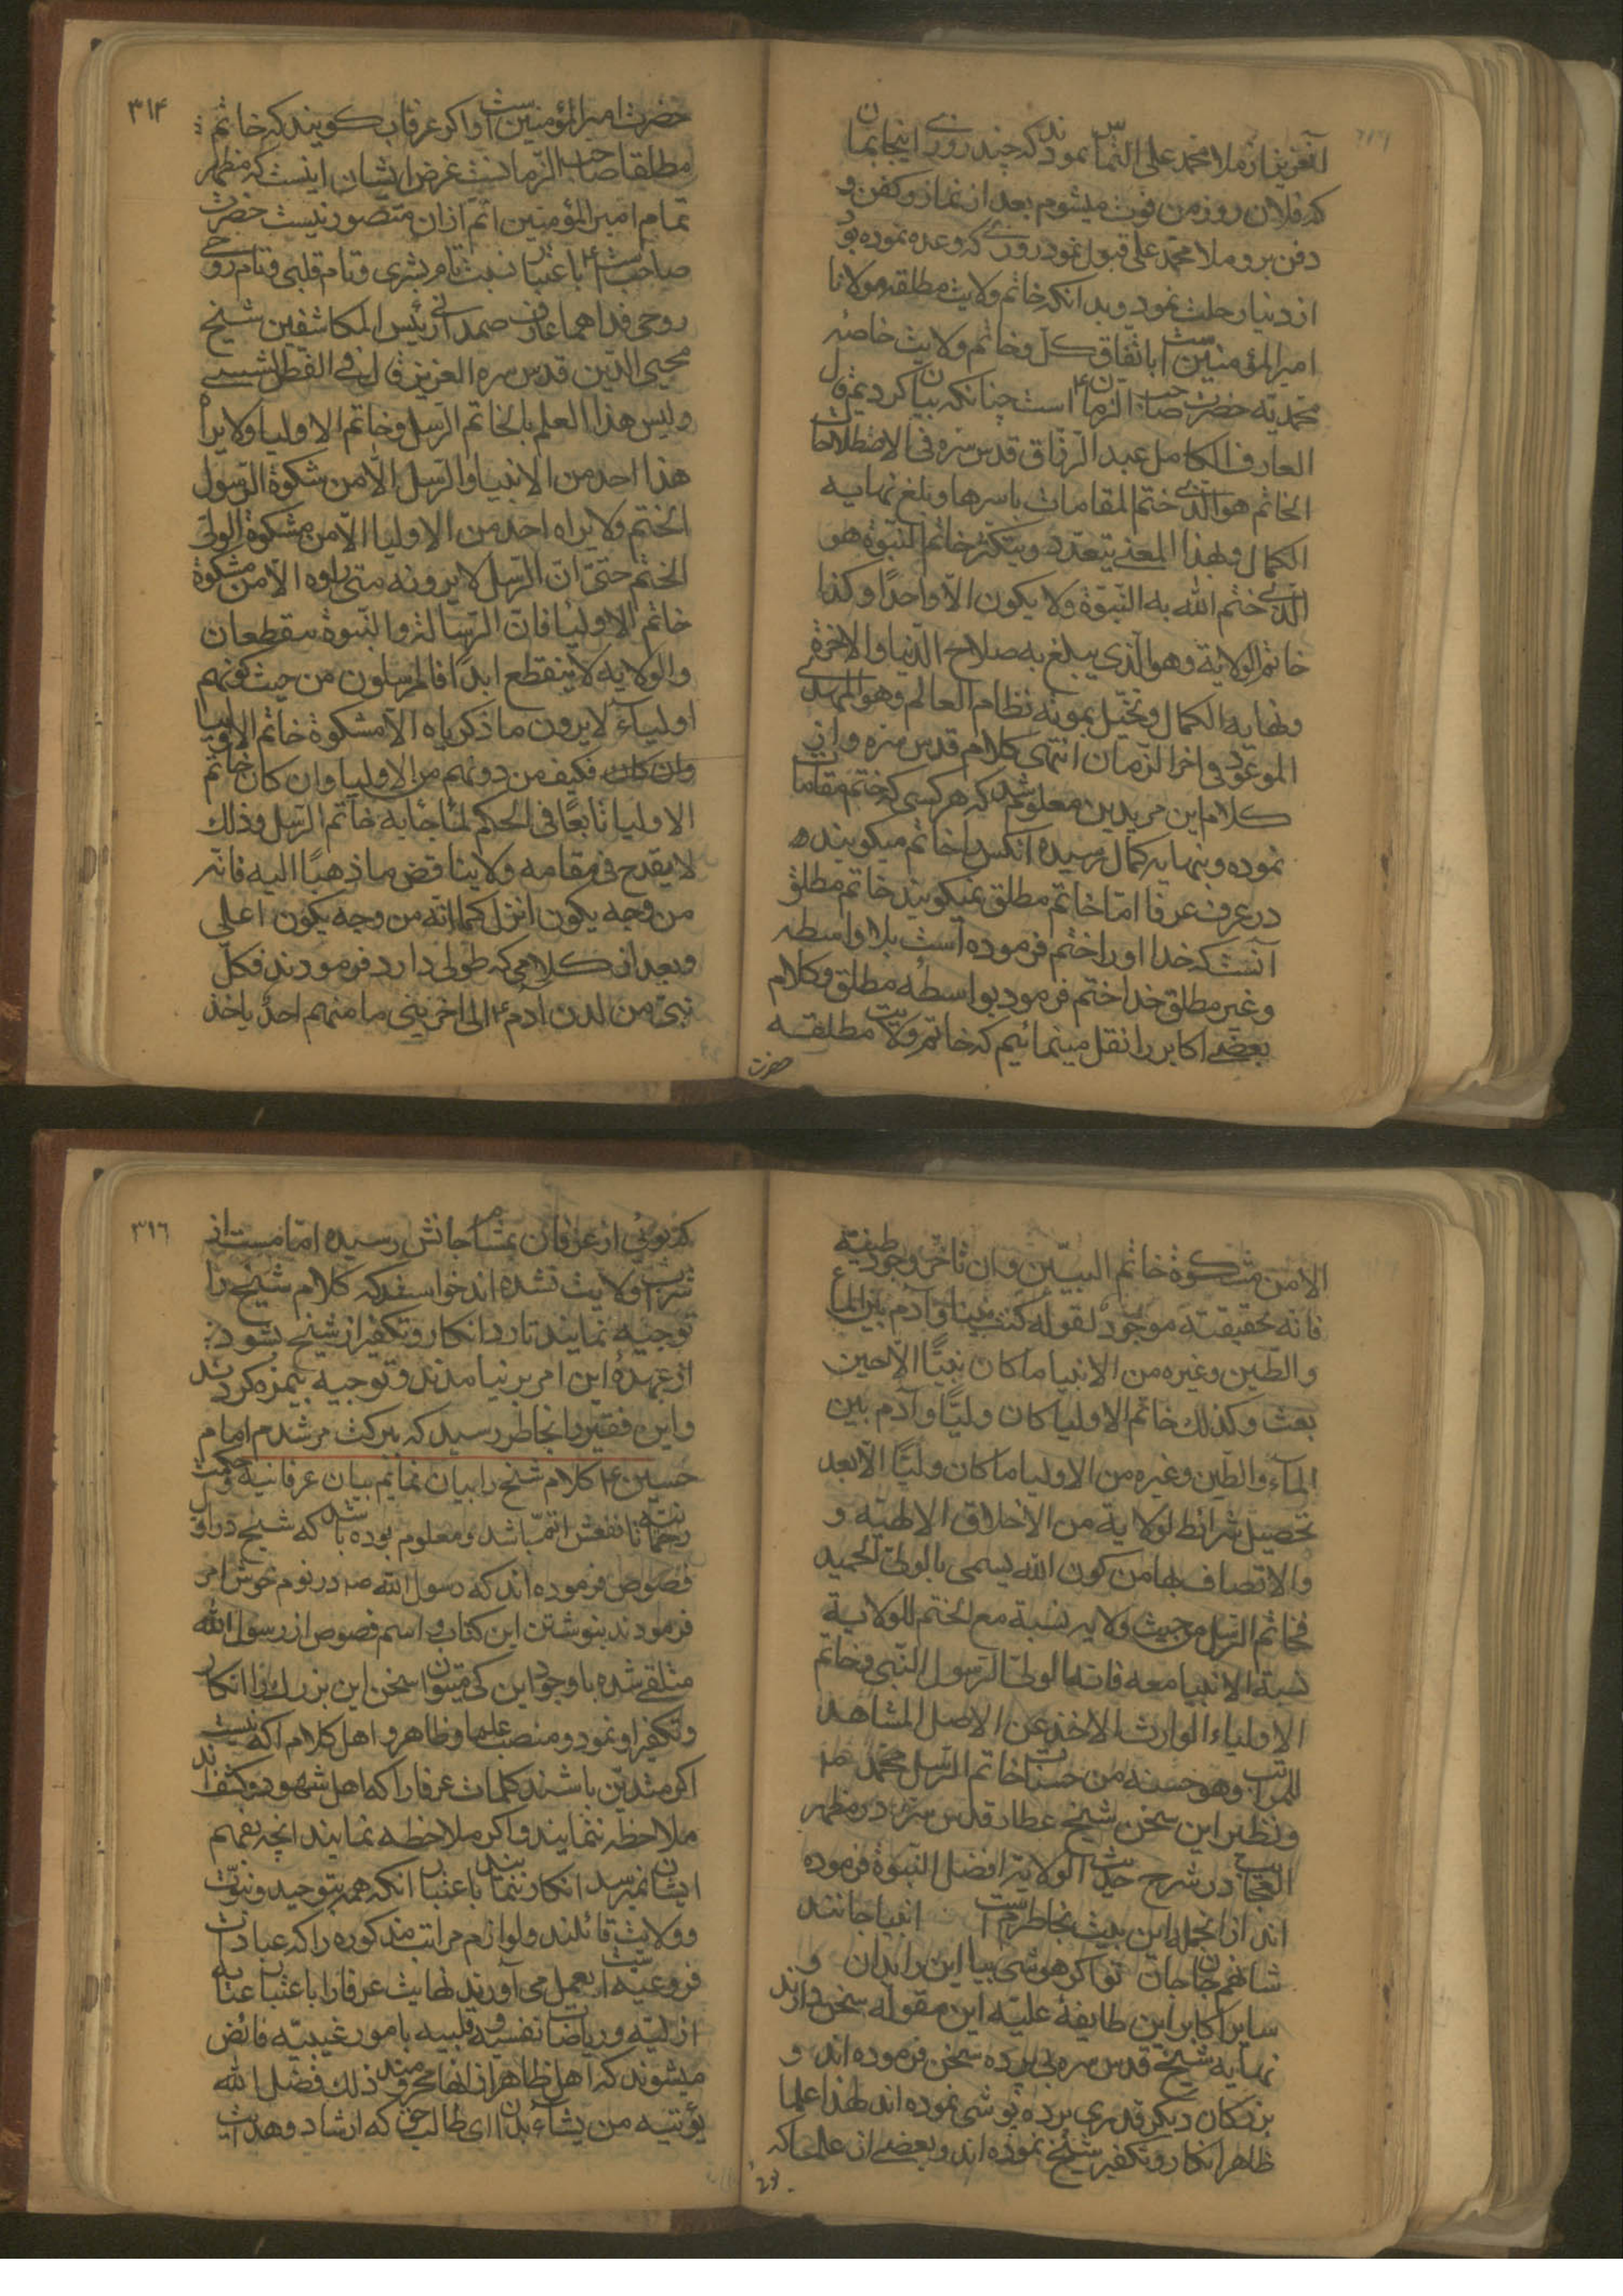 آنعزیز از ملا محمد علی التماس نمودند که چند روزی اینجا بمان
که فلان روز من فوت میشوم بعد از نماز و کفن و
دفن برو ملا محمد علی قبول نمود روزی که وعده نموده بود
از دنیا رحلت نمود و بدانکه خاتم ولایت مطلقه مولانا
امیرالمؤمنین است باتفاق کل و خاتم ولایت خاصه
محمدیه حضرت صاحب الزمان ع است چنانکه بیان کردیم قال
العارف الکامل عبد الرزاق قدس سره فی الاصطلاحات
الخاتم هو الذی ختم المقامات باسرها و بلغ نهایه
الکمال و بهذا المعنی یتعدد و یتکثر خاتم النبوة هو
الذی ختم الله به النبوة ولا یکون الا واحدًا و کذا
خاتم الولایة و هو الذی یبلغ به صلاح الدنیا و الاخرة
و نهایه الکمال و یختل بموته نظام العالم و هو المهدی
الموعود فی اخر الزمان انتهی کلام قدس سره و از
کلام این مریدین معلوم شد که هر کسی که ختم مقامات
نموده و بنهایه کمال رسیده انکس را خاتم میکویند
در عرف عرفا اما خاتم مطلق نمیکویند خاتم مطلق
آنست که خدا او را ختم فرموده است بلا واسطه
و غیر مطلق خدا ختم فرمود بواسطه مطلق و کلام
بعضی اکابر را نقل مینمائیم که خاتم ولایت مطلقه
حضرت
۳۱۴
حضرت امیرالمؤمنین است و اکر عرفا کویند که خاتم
مطلقا صاحب الزمانست غرض ایشان اینست که مظهر
تمام امیرالمؤمنین اتم ازان متصور نیست حضرت
صاحب است ع باعتبار نسبت تام بشری و تام قلبی و تام روحی
روحی فداهما عارف صمدانی رئیس المکاشفین شیخ
محیی الدین قدس سره العزیز قال فی الفص الشیثی
و لیس هذا العلم الا لخاتم الرسل و خاتم الاولیا و لا یراه
هذا احد من الانبیا و الرسل الا من مشکوة الرسول
الختم و لا یراه احد من الاولیا الا من مشکوة الولی
الختم حتی ان الرسل لا یرونه متی راوه الا من مشکوة
خاتم الاولیا فان الرسالة و النبوة ینقطعان
و الولایه لا ینقطع ابدًا فالمرسلون من حیث کونهم
اولیآء لا یرون ما ذکرناه الا مشکوة خاتم الاولیا
وان کان فکیف من دونهم من الاولیا و ان کان خاتم
الاولیا تابعًا فی الحکم لما جآء به خاتم الرسل و ذلک
لا یقدح فی مقامه و لا یناقض ما ذهبنا الیه فانه
من وجه یکون انزل کما انه من وجه یکون اعلی
و بعد از کلامی که طولی دارد فرمودند فکل
نبی من لدن ادم ع الی اخر نبی ما منهم احد یاخذ
الا من مشکوة خاتم النبیین و ان تاخر وجود طینة
فانه بحقیقته موجود لقوله کنت نبیا و آدم بین الماء
و الطین و غیره من الانبیا ما کان نبیًّا الا حین
بعث و کذلک خاتم الاولیا کان ولیًّا و آدم بین
المآء و الطین و غیره من الاولیا ما کان ولیًّا الا بعد
تحصیل شرائط لولایة من الاخلاق الالهیه و
و الاتصاف بها من کون الله یسمی بالولی الحمید
فخاتم الرسل من حیث ولایه نسبة مع الختم للولایة
نسبة الانبیا معه فانه الولی الرسول النبی و خاتم
الاولیاء الوارث الاخذ عن الاصل المشاهد
للمراتب و هو حسنه من حسنات خاتم الرسل محمد ص
و نظیر این سخن شیخ عطار قدس سره در مظهر
العجایب در شرح حدیث الولایة افضل النبوة فرموده
اند از انجمله این بیت بخاطرم است انبیا جانند
شاهم جان جان تو اکر هوشی بیا این را بدان و
سایر اکابر این طایفهٔ علیّه این مقوله سخن دارند
نهایه شیخ قدس سره بی پرده سخن فرموده اند و
بزرکان دیکر قدری پرده پوشی نموده اند لهذا علما
ظاهر انکار و تکفیر شیخ نموده اند و بعضی از علما که
۳۱۶
که بوئی از عرفان بمشام جانش رسیده اما مست از
شراب ولایت نشده اند خواستند که کلام شیخ را
توجیه نمایند تا رد انکار و تکفیر از شیخ بشود
از عهدهٔ این امر بر نیامدند و توجیه بیمزه کردند
و این فقیر را بخاطر رسید که ببرکت مرشدم امام
حسین ع کلام شیخ را بیان نمایم بیان عرفانیه و حکمت
رحمانیه تا نفعش اتم باشد و معلوم بوده باشد که شیخ در اول
فصوص فرموده اند که رسول الله ص در نوم خوش امر
فرمودند بنوشتن این کتاب و اسم فصوص از رسول الله
متلقی شده با وجود این کی میتوان سخن این بزرک را انکار
و تکفیر او نمود و منصب علما و ظاهر و اهل کلام آنکه نیست
اکر متدین باشند کلمات عرفا را که اهل شهود و کشف اند
ملاحظه ننمایند و اکر ملاحظه نمایند انچه بفهم
ایشان نمیرسد انکار ننمایند باعتبار انکه همه بتوحید و نبوت
و ولایت قائلند و لوازم مراتب مذکوره را که عبادات
فروعیه است بعمل می آورند نهایت عرفا را باعتبار عنایه
ازلیه و ریاضات نفسیه و قلبیه بامور غیبیه فائض
میشوند که اهل ظاهر از انها محرومند ذلک فضل الله
یؤتیه من یشآء بدان ای طالب حق که ارشاد و هدایت